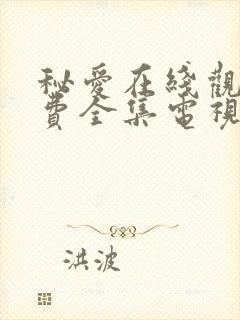 秘愛在綫觀
費全集電視
洪波